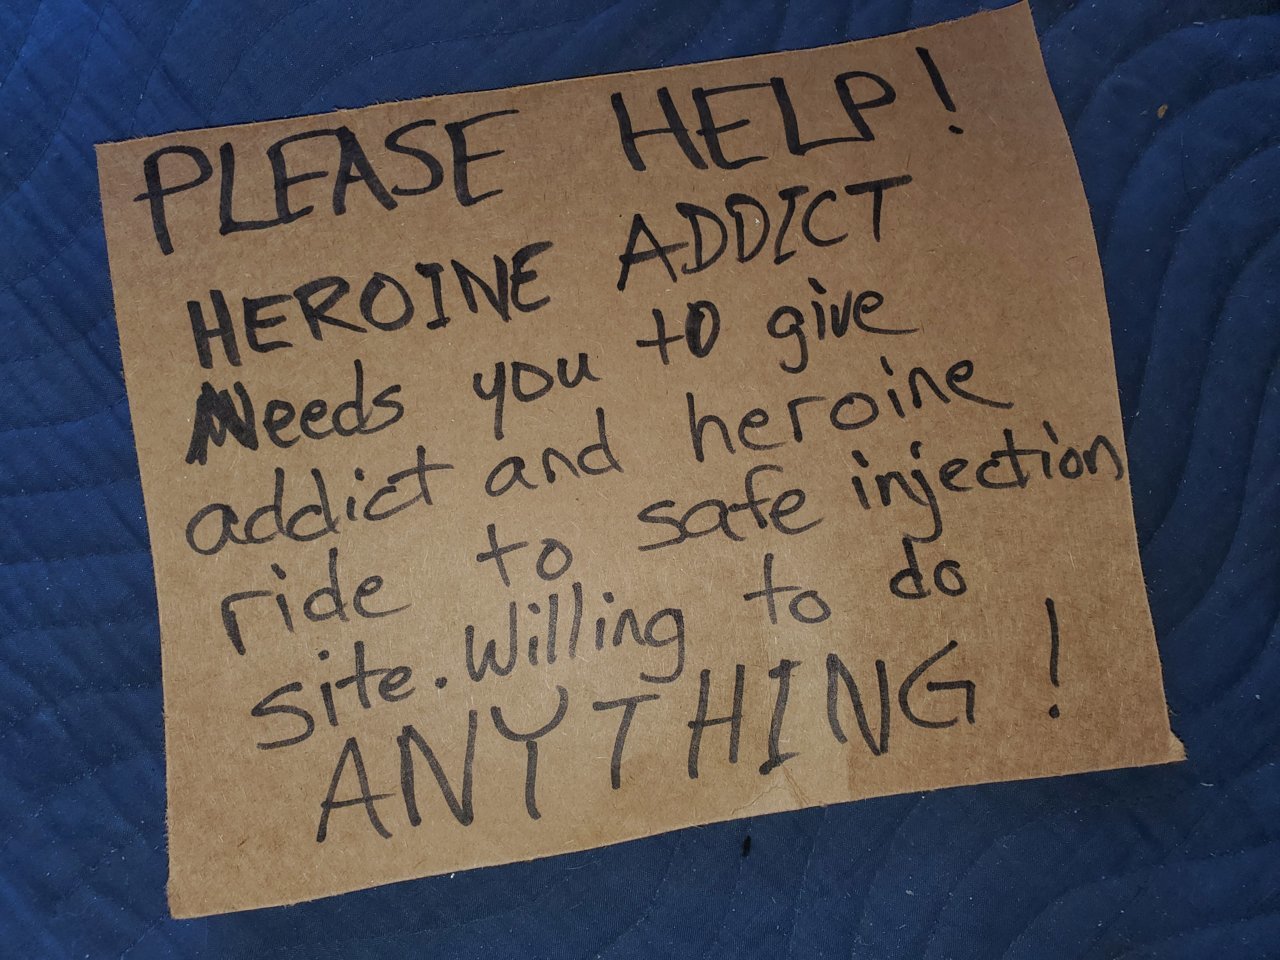 PLEASE HELP!
HEROINE ADDICT
Needs you to give
addict and heroine
ride to safe injection
site. Willing to do
ANYTHING!